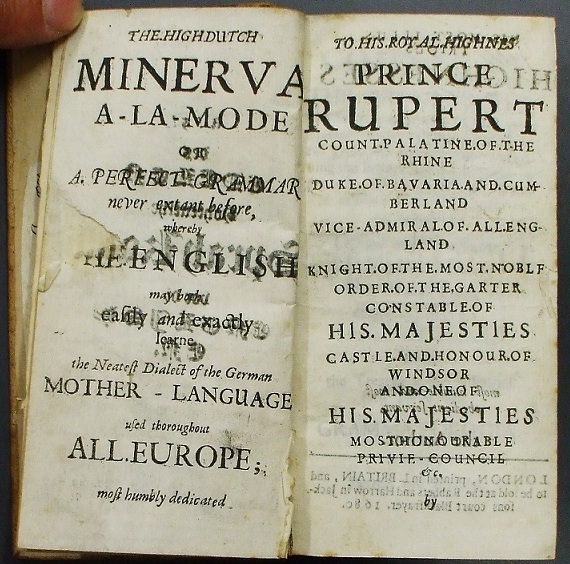 THE.HIGHDUTCH
MINERVA
A-LA-MODE
OR
A. PERFECT. GRAMMAR
never extant before,
whereby
THE.ENGLISH
may both
eaſily and exactly
learne
the Neateſt Dialect of the German
MOTHER - LANGUAGE
uſed thoroughout
ALL.EUROPE;
moſt humbly dedicated
TO.HIS.ROYAL.HIGHNES
PRINCE
RUPERT
COUNT.PALATINE.OF.THE
RHINE
DUKE.OF.BAVARIA.AND.CUM-
BERLAND
VICE-ADMIRAL.OF.ALL.ENG-
LAND
KNIGHT.OF.THE.MOST.NOBLE
ORDER.OF.THE.GARTER
CONSTABLE.OF
HIS.MAJESTIES
CASTLE.AND.HONOUR.OF
WINDSOR
AND.ONE.OF
HIS.MAJESTIES
MOST.HONOURABLE
PRIVIE-COUNCIL
&c.
by